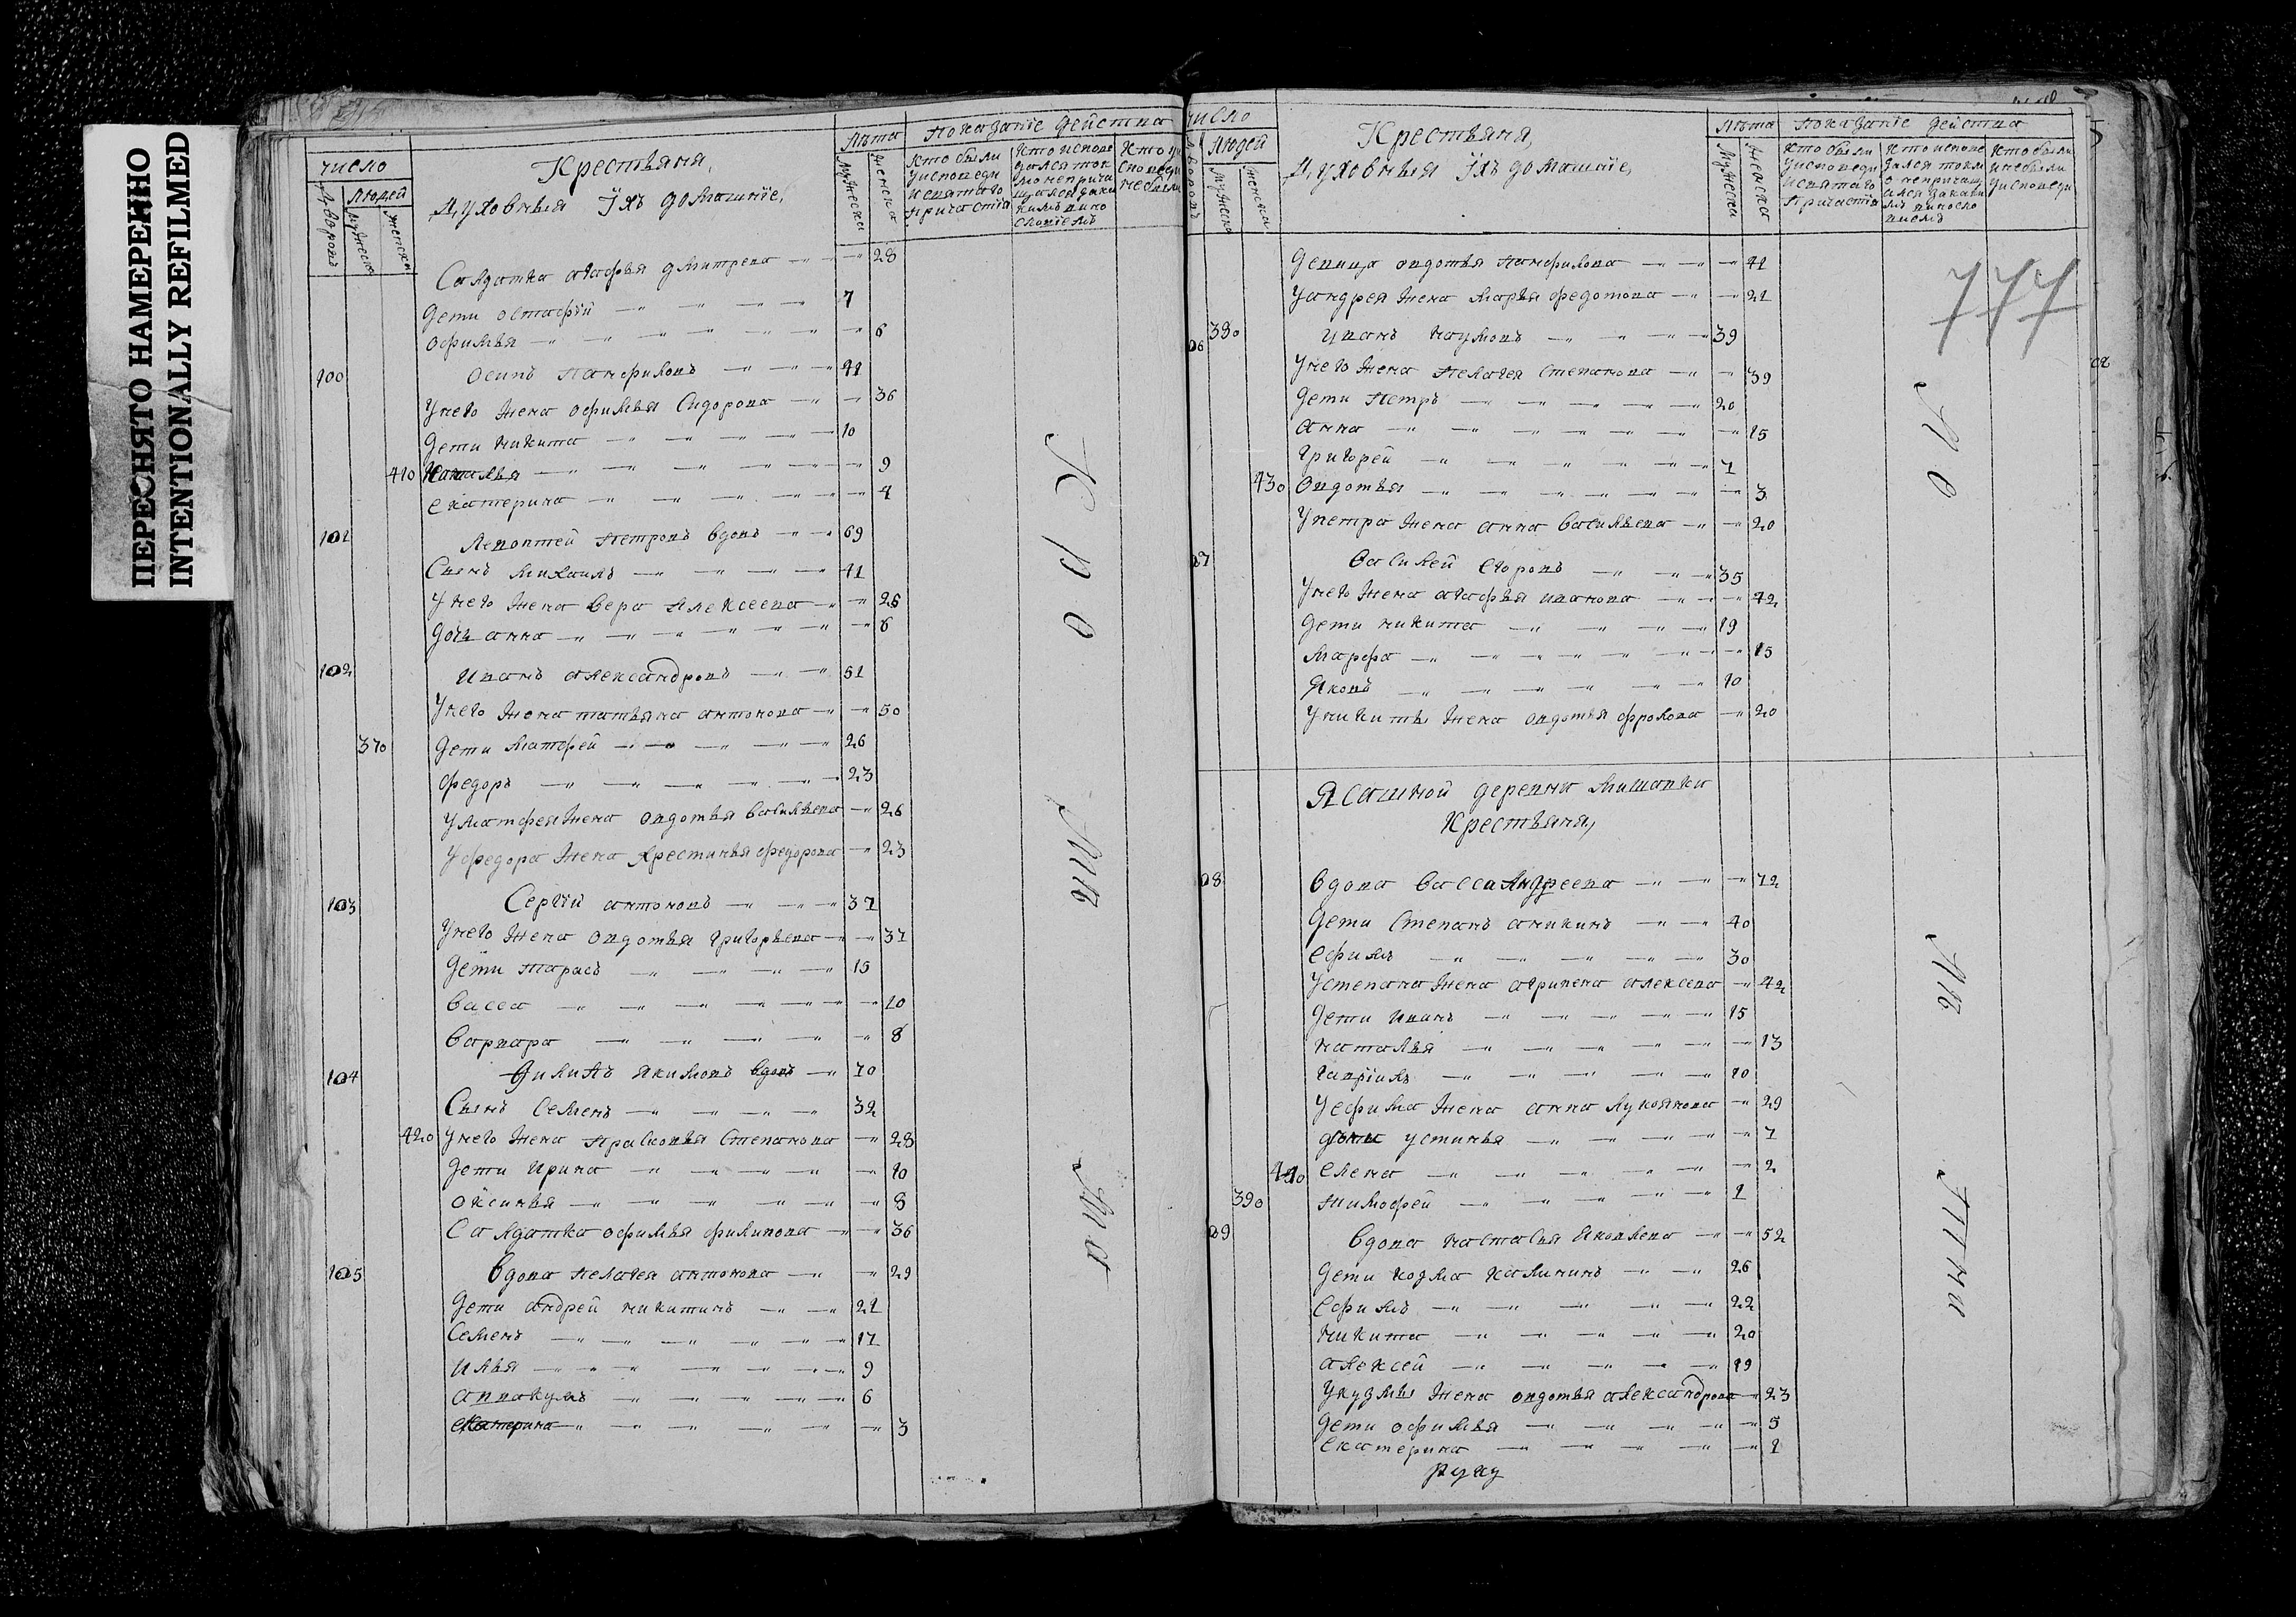 ПЕРЕСНЯТО НАМЕРЕННО
INTENTIONALLY REFILMED
число
Людей
Дворовъ
мужеска
женска
Крестьяня,
Духовныя Ïхъ домашнïе,
Лѣта
мужеска
женска
показанïе действа
Кто были
уисповеди
исвятаго
причастïя
Кто исповедался
Солдатка агафья дмитрева 28
дети остафiй 7
офимья 6
100 осипъ панфиловъ 41
унего жена офимья Сидорова 36
дети никита 10
410 наталья 9
екатерина 4
101 Леонтей петровъ вдовъ 69
Сынъ михаилъ 41
унего жена вера Алексеева 26
дочь анна 6
102 иванъ александровъ 51
унего жена татьяна антонова 50
370 дети матфей 26
федоръ 23
уматфея жена овдотья васильева 26
уфедора жена крестинья федорова 23
103 Сергiй антоновъ 37
унего жена овдотья григорьева 37
дети тарасъ 15
васса 10
варвара 8
104 филипъ якимовъ вдовъ 70
Сынъ Семенъ 32
420 унего жена прасковья Степанова 28
дети ирина 10
оксинья 8
Салдатка офимья филипова 36
105 вдова пелагея антонова 29
дети андрей никитинъ 21
Семенъ 17
илья 9
аввакумъ 6
екатерина 3
число
Людей
Дворовъ
мужеска
женска
Крестьяня,
Духовныя Ïхъ домашнïе,
Лѣта
мужеска
женска
показанïе действа
Кто были
уисповеди
исвятаго
причастïя
Кто были
уисповеди
777
девица овдотья панфилова 41
уандрея жена марья федотова 21
06 380 иванъ наумовъ 39
унего жена пелагея Степанова 39
дети петръ 20
анна 15
григорей 7
430 овдотья 3
упетра жена анна васильева 20
07 василей егоровъ 35
унего жена агафья иванова 42
дети никита 19
марфа 15
яковъ 10
уникиты жена овдотья фролова 20
Ясашной деревни мишавка
Крестьяня,
08 вдова васса Андреева 72
дети Степанъ аникинъ 40
ефимъ 30
устепана жена агрипена алексева 42
дети иванъ 15
наталья 13
гаврiилъ 10
уефима жена анна лукоянова 29
дети устинья 7
440 елена 2
390 тимофей 1
09 вдова настасья яковлева 52
дети козма калининъ 26
ефимъ 22
никита 20
алексей 19
укузмы жена овдотья александрова 23
дети офимья 5
екатерина 1
руку